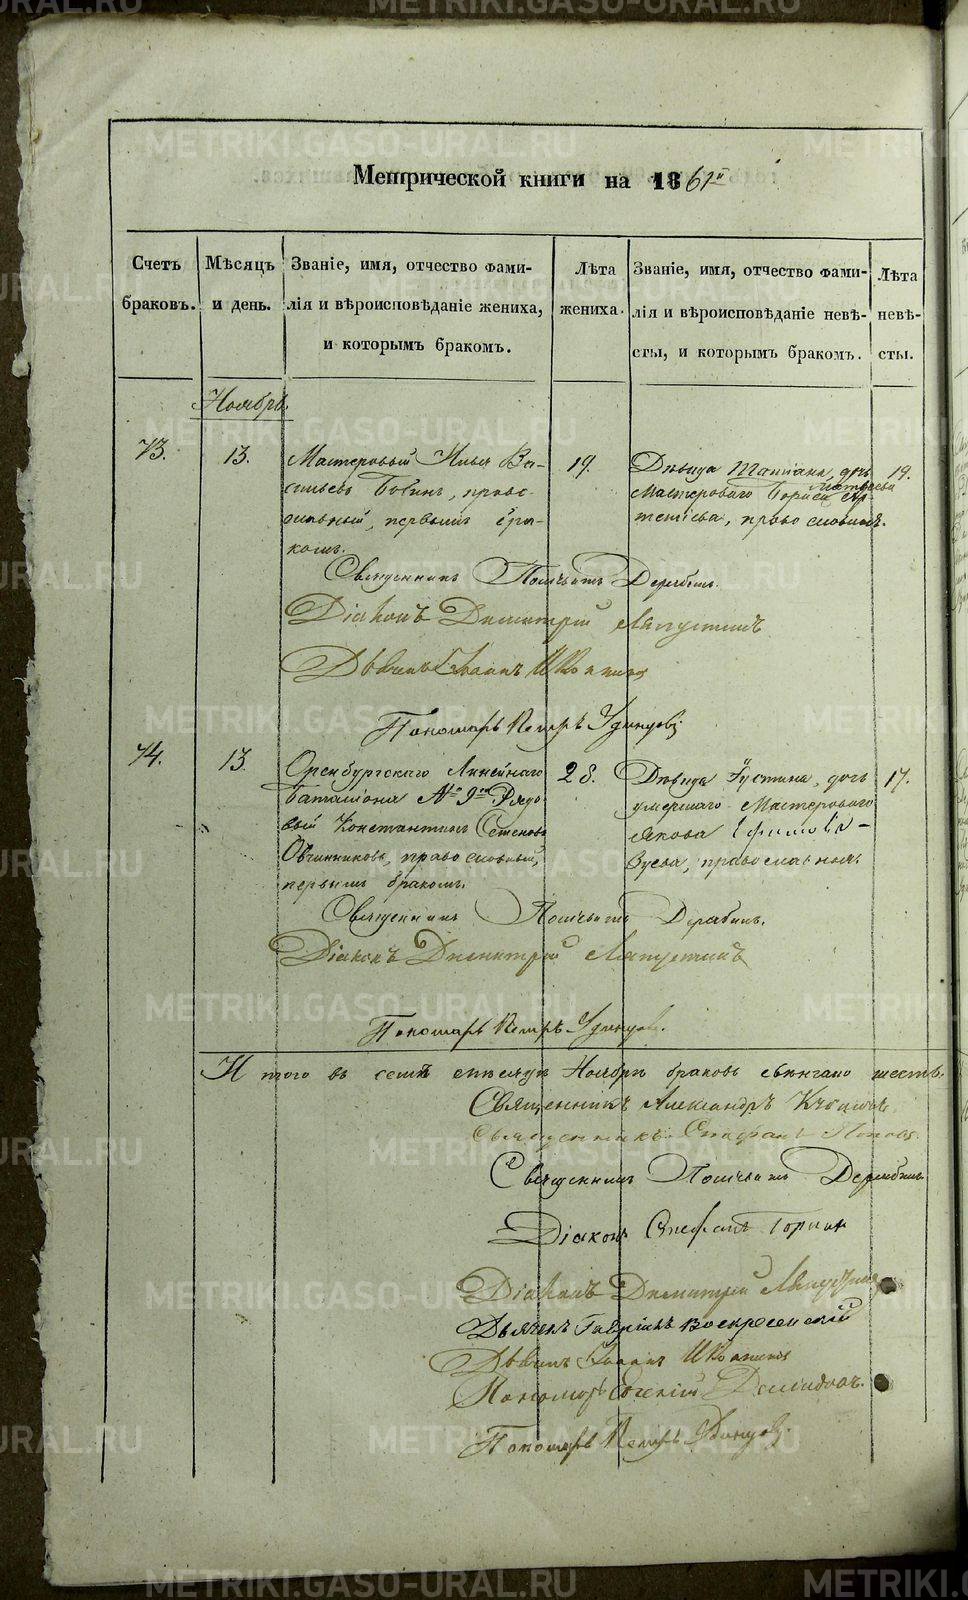 Метрической книги на 1861й
Счетъ браковъ.
Мѣсяцъ и день.
Званіе, имя, отчество фами-
лія и вѣроисповѣданіе жениха,
и которымъ бракомъ.
Лѣта жениха.
Званіе, имя, отчество фами-
лія и вѣроисповѣданіе невѣ-
сты, и которымъ бракомъ.
Лѣта невѣ-
сты.
Ноябрь
73.
13.
Мастеровый Илья Ва-
сильевъ, право-
славный, первымъ бра-
комъ.
19.
Дѣвица Татіана, дочь
Мастероваго Бориса
православная.
19.
Священникъ Дерябинъ.
Діаконъ Димитрій Ляпустинъ
Дьячекъ Іоаннъ
Пономарь Петръ Удинцовъ
74.
13.
Оренбургскаго Линейнаго
баталіона № 9го Рядо-
вый Константинъ Семеновъ
Овчинниковъ, православный,
первымъ бракомъ.
28.
Дѣвица Іустина, дочь
умершаго Мастероваго
Якова Ефимова
Зуева, православная.
17.
Священникъ Дерябинъ.
Діаконъ Димитрій Ляпустинъ
Пономарь Петръ Удинцовъ.
Итого въ семъ мѣсяцѣ Ноябрѣ браковъ свѣнчано шесть.
Священникъ Александръ
Священникъ Стефанъ Поповъ.
Священникъ Дерябинъ
Діаконъ Стефанъ
Діаконъ Димитрій Ляпустинъ
Дьячекъ Гавріилъ Воскресенскій
Дьячекъ Іоаннъ
Пономарь Евгеній Демидовъ.
Пономарь Петръ Удинцовъ.
METRIKI.GASO-URAL.RU